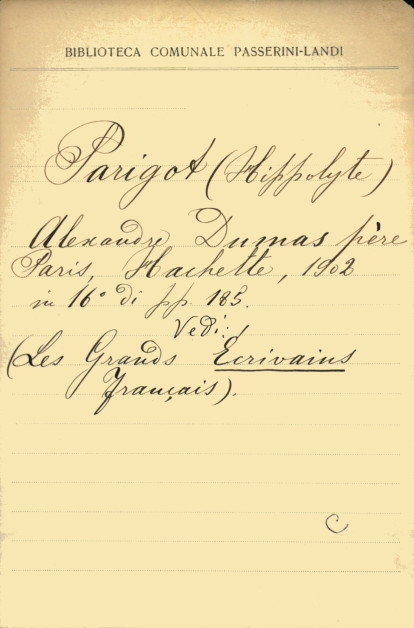 BIBLIOTECA COMUNALE PASSERINI-LANDI
Parigot (Hippolyte)
Alexandre Dumas père
Paris, Hachette, 1902
in 16° di pp. 185.
Vedi:
(Les Grands Ecrivains
Français).
C